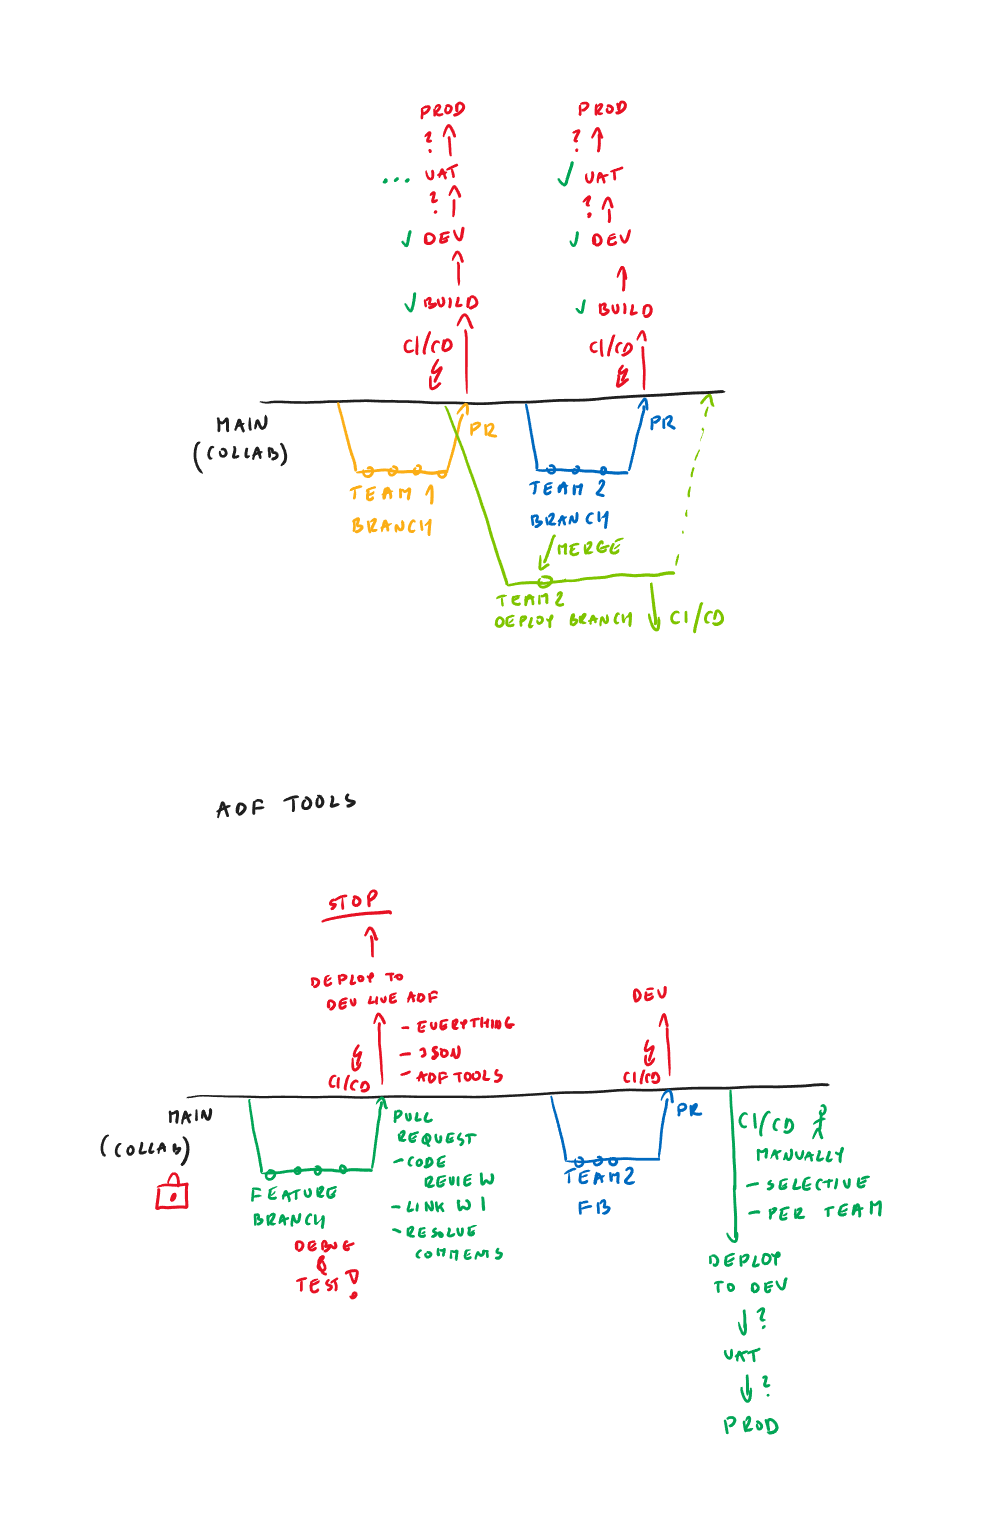 PROD
?
... UAT
?
✓ DEV
✓ BUILD
CI/CD
PROD
?
✓ UAT
?
✓ DEV
✓ BUILD
CI/CD
MAIN
(COLLAB)
PR
TEAM 1
BRANCH
PR
TEAM 2
BRANCH
MERGE
TEAM 2
DEPLOY BRANCH
CI/CD
ADF TOOLS
STOP
DEPLOY TO
DEV LIVE ADF
- EVERYTHING
- JSON
- ADF TOOLS
CI/CD
DEV
CI/CD
MAIN
(COLLAB)
FEATURE
BRANCH
DEBUG
&
TEST!
PULL
REQUEST
- CODE
REVIEW
- LINK WI
- RESOLVE
COMMENTS
TEAM 2
FB
PR
CI/CD
MANUALLY
- SELECTIVE
- PER TEAM
DEPLOY
TO DEV
?
UAT
?
PROD